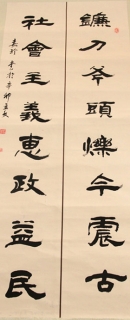 鐮刀斧頭爍今震古
社會主義惠政益民